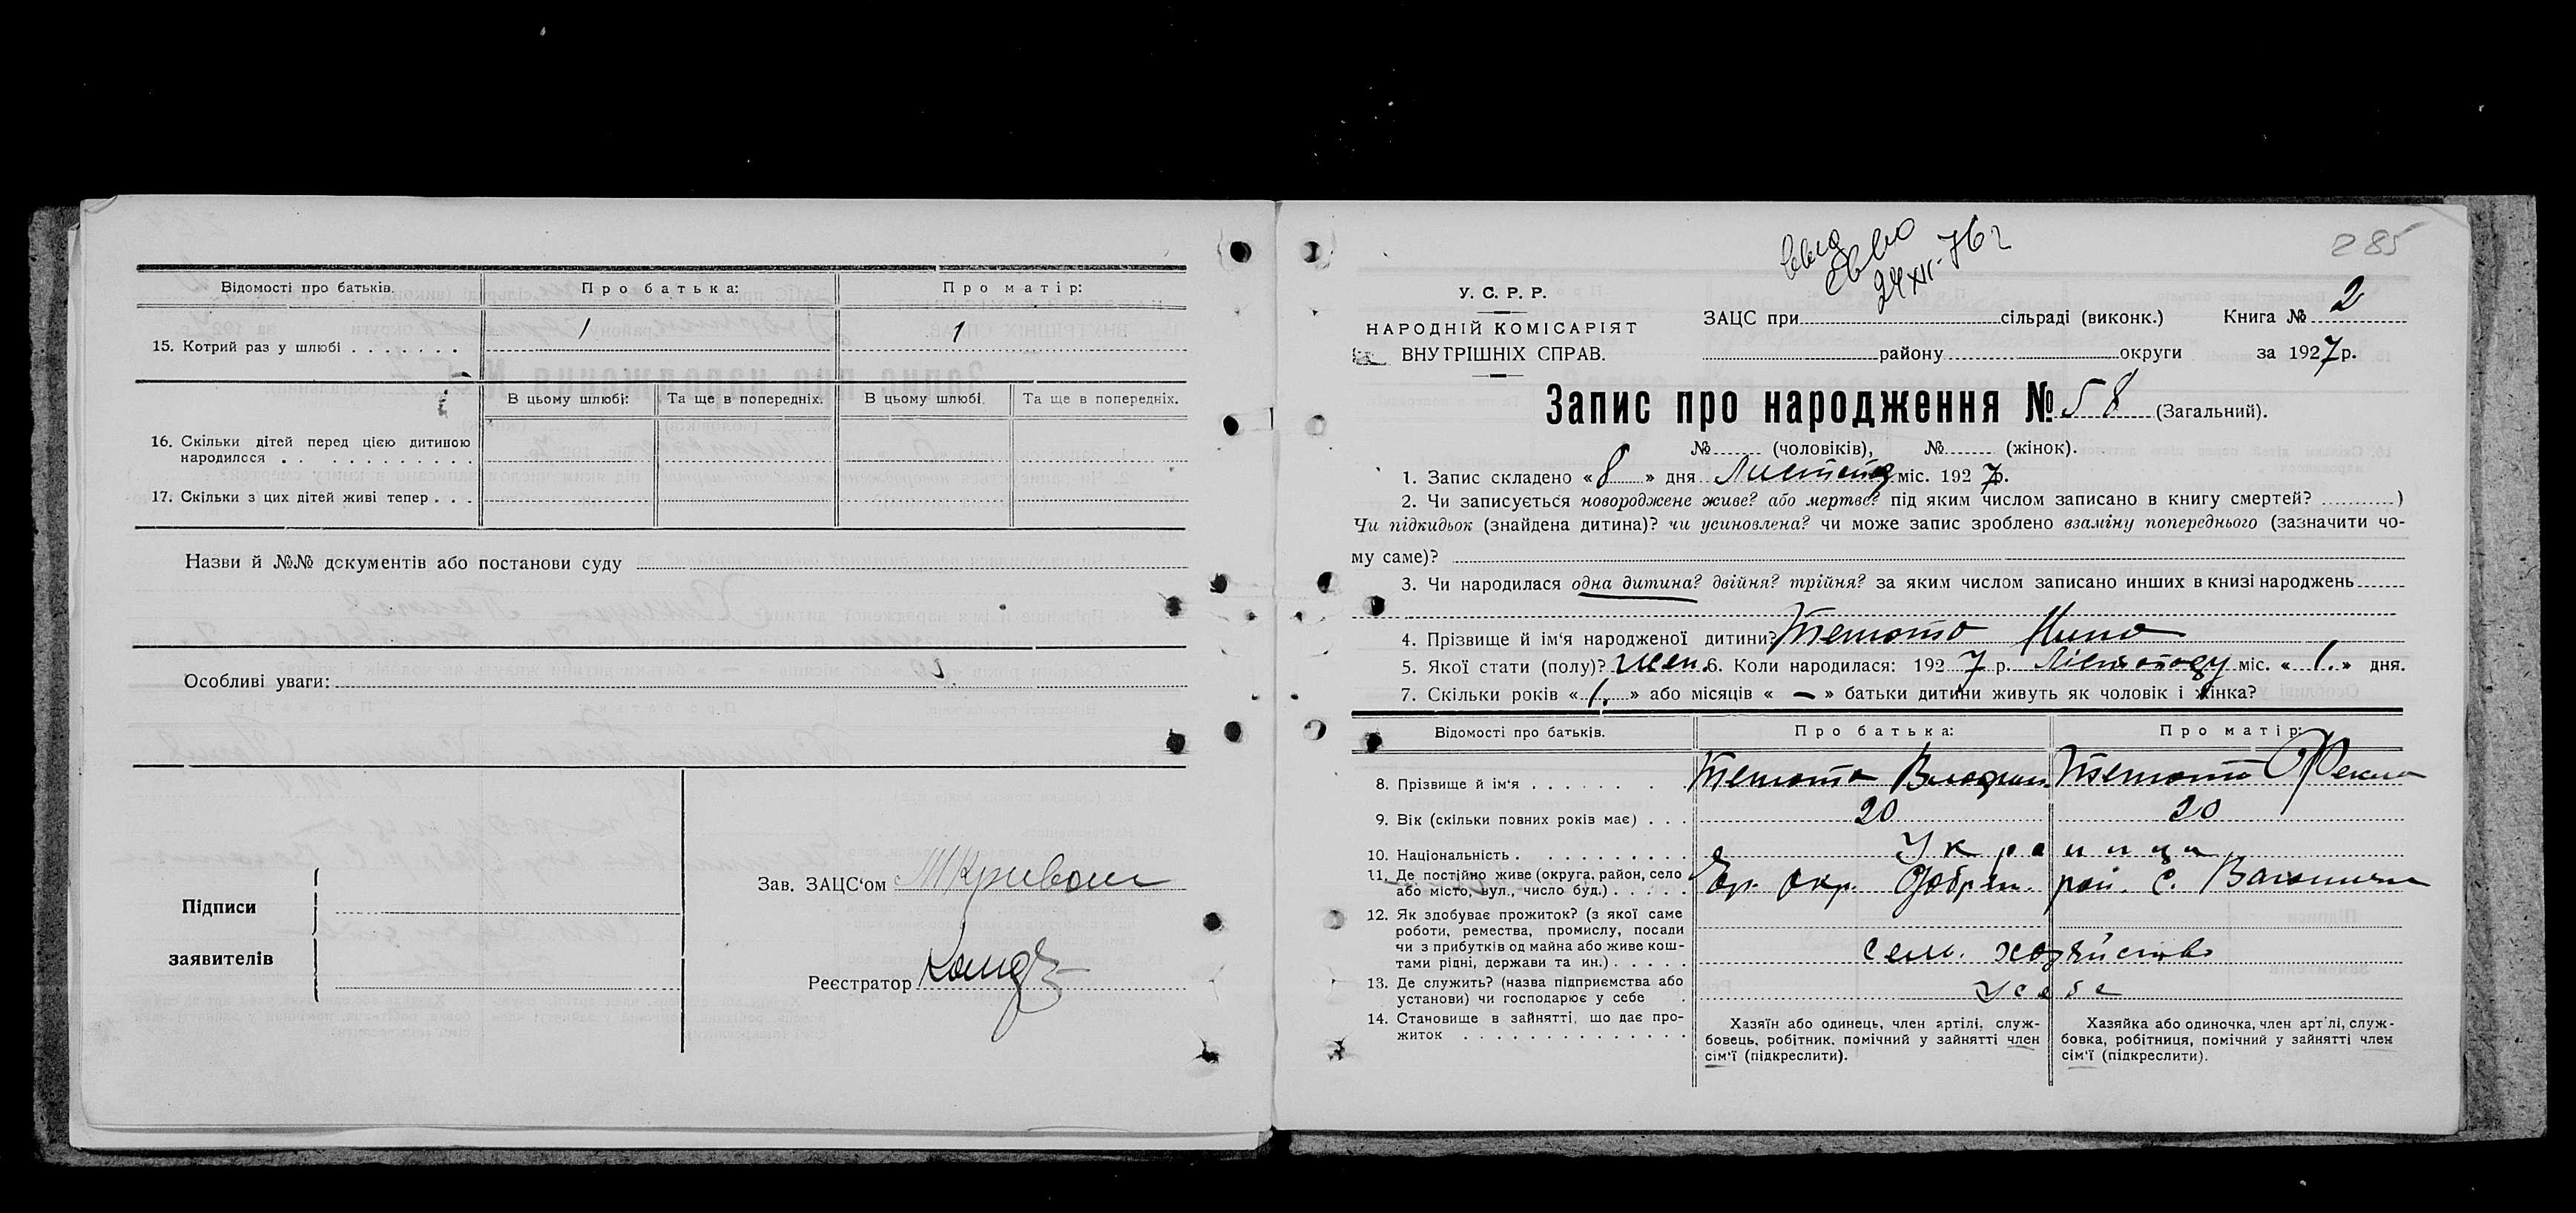 Відомості про батьків.
Про батька:
Про матір:
15. Котрий раз у шлюбі . . . . . . .
1
1
В цьому шлюбі:
Та ще в попередніх.
В цьому шлюбі
Та ще в попередніх.
16. Скільки дітей перед цією дитиною
народилося . . . . . . . . . . . .
17. Скільки з цих дітей живі тепер . . .
Назви й №№ документів або постанови суду
Особливі уваги:
Підписи
заявителів
Зав. ЗАЦС'ом
Реєстратор
285
24 XII-76 г
У. С. Р. Р.
НАРОДНІЙ КОМІСАРІЯТ
ВНУТРІШНІХ СПРАВ.
ЗАЦС при сільраді (виконк.) Книга № 2
району округи за 1927 р.
Запис про народження № 58 (Загальний).
№ (чоловіків), № (жінок).
1. Запис складено « 8 » дня міс. 1927 р.
2. Чи записується новороджене живе? або мертве? під яким числом записано в книгу смертей? )
Чи підкидьок (знайдена дитина)? чи усиновлена? чи може запис зроблено взаміну попереднього (зазначити чо-
му саме)?
3. Чи народилася одна дитина? двійня? трійня? за яким числом записано инших в книзі народжень
4. Прізвище й ім'я народженої дитини? Нина
5. Якої стати (полу)? жен. 6. Коли народилася: 1927 р. Лістопаду міс. « 1. » дня.
7. Скільки років « 1. » або місяців « — » батьки дитини живуть як чоловік і жінка?
Відомості про батьків.
Про батька:
Про матір:
8. Прізвище й ім'я . . . . . . . . Фекла
9. Вік (скільки повних років має) . . . 20 20
10. Національність . . . . . . . . . . Украинцы
11. Де постійно живе (округа, район, село
або місто, вул., число буд.) . . . . . окр. Добрян. рай. с.
12. Як здобуває прожиток? (з якої саме
роботи, ремества, промислу, посади
чи з прибутків од майна або живе кош-
тами рідні, держави та ин.) . . . . . сель. хозяйство
13. Де служить? (назва підприємства або
установи) чи господарює у себе . у себе
14. Становище в зайнятті, що дає про-
житок . . . . . . . . . . . . . .
Хазяїн або одинець, член артілі, служ-
бовець, робітник, помічний у зайнятті член
сім'ї (підкреслити).
Хазяйка або одиночка, член артілі, служ-
бовка, робітниця, помічний у зайнятті член
сім'ї (підкреслити).